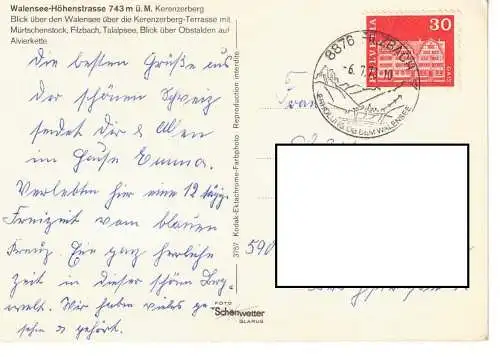 Walensee-Höhenstrasse 743 m ü. M. Kerenzerberg
Blick über den Walensee über die Kerenzerberg-Terrasse mit
Mürtschenstock, Filzbach, Talalpsee, Blick über Obstalden auf
Alvierkette.
Die besten Grüße aus
der schönen Schweiz
sendet dir & Allen
im Hause Emma.
Verlebten hier eine 12 tägg.
Freizeit vom blauen
Kreuz. Eine ganz herrliche
Zeit in dieser schönen Berg-
welt. Wir haben vieles ge-
sehn & gehört.
3157 Kodak-Ektachrome-Farbphoto Reproduction interdite
FOTO
Schönwetter
GLARUS
8876 FILZBACH
-6.7.
10
OB DEM WALENSEE
HELVETIA
30
Frau
590